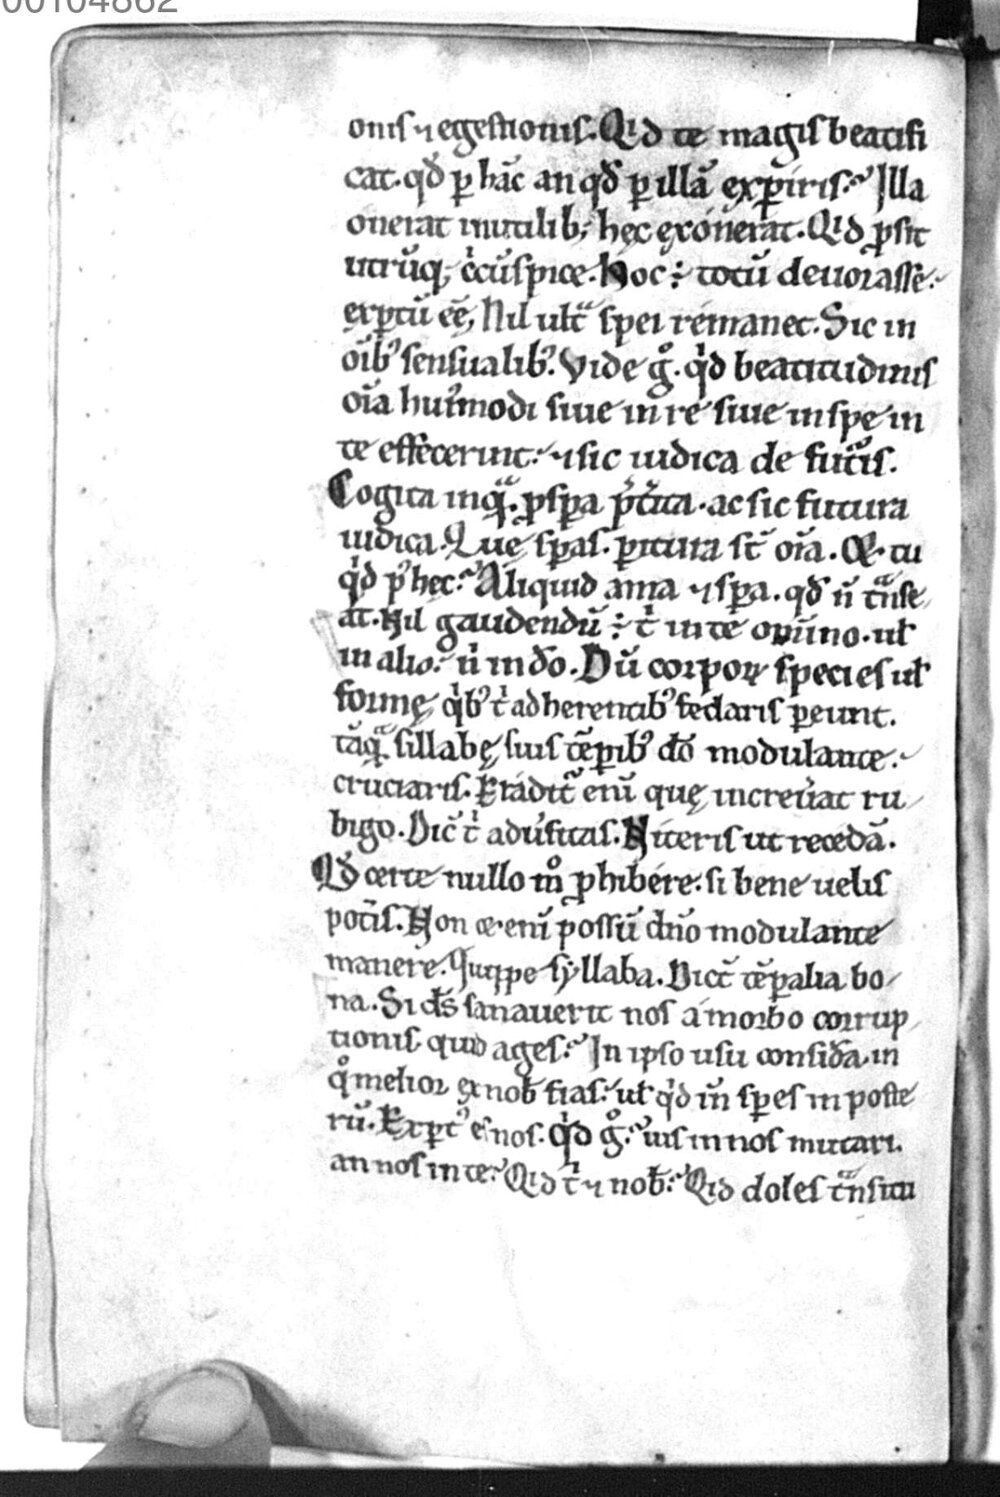 00104862
onis ⁊ egestionis. Qid te magis beatifi
cat. qđ ꝑ hāc an qđ ꝑ illā exꝑiris.؟ Illa
onerat inutilib; hęc exonerat. Qid ꝓsit
utrūq; ccūspice. Hoc ÷ totū deuorasse.
exꝑtū eē, Nil ult̄ spei remanet. Sic in
oīb᷒ sensualib᷒. Vide gͦ. qͥd beatitudinis
oīa hui᷒modi siue in re siue in spe in
te effecerint. ⁊ sic iudica de fut̄is.
Cogita inqͣ. ꝓspa p̄t̄ita. ac sic futura
iudica. Quę spas. ꝑitura st̄ oīa. Et tu
qͥd p᷒ hęc.؟ Aliquid ama ⁊ spa. qđ n̄ tͣnse
at. Nil gaudendū ÷ tͥ in te
in alio.؟ nͥ in dō. Dū corpoꝝ species ul̄
formę, qͥb᷒ tͥ adherentib᷒ fedaris ꝑeunt.
tāqͣ sillabę suis tēpib᷒ dō modulante.
cruciaris. Eradit᷒ enī quę increuͣat ru
bigo. Dic̄ tͥ aduͥsitas. Niteris ut recedā.
Qđ certe nullo mͦ ꝓhibere. si bene uelis
pot̄is. Non te enī possū dn̄o modulante
manere. Quippe syllaba. Dict̄ tēꝑalia bo
na. Si ds̄ sanauerit nos a morbo corrup
tionis quid ages.؟ In ipso usu considͣa. in
qͦ melior ex nob̄ fias.؟ ul̄ qͥd in̄ spes in poste
rū. Exꝑt᷒ es nos. qͥd gͦ.؟ uis in nos mutari.
an nos in te.؟ Qid tͥ ⁊ nob̄.؟ Qid doles tͣnsitū